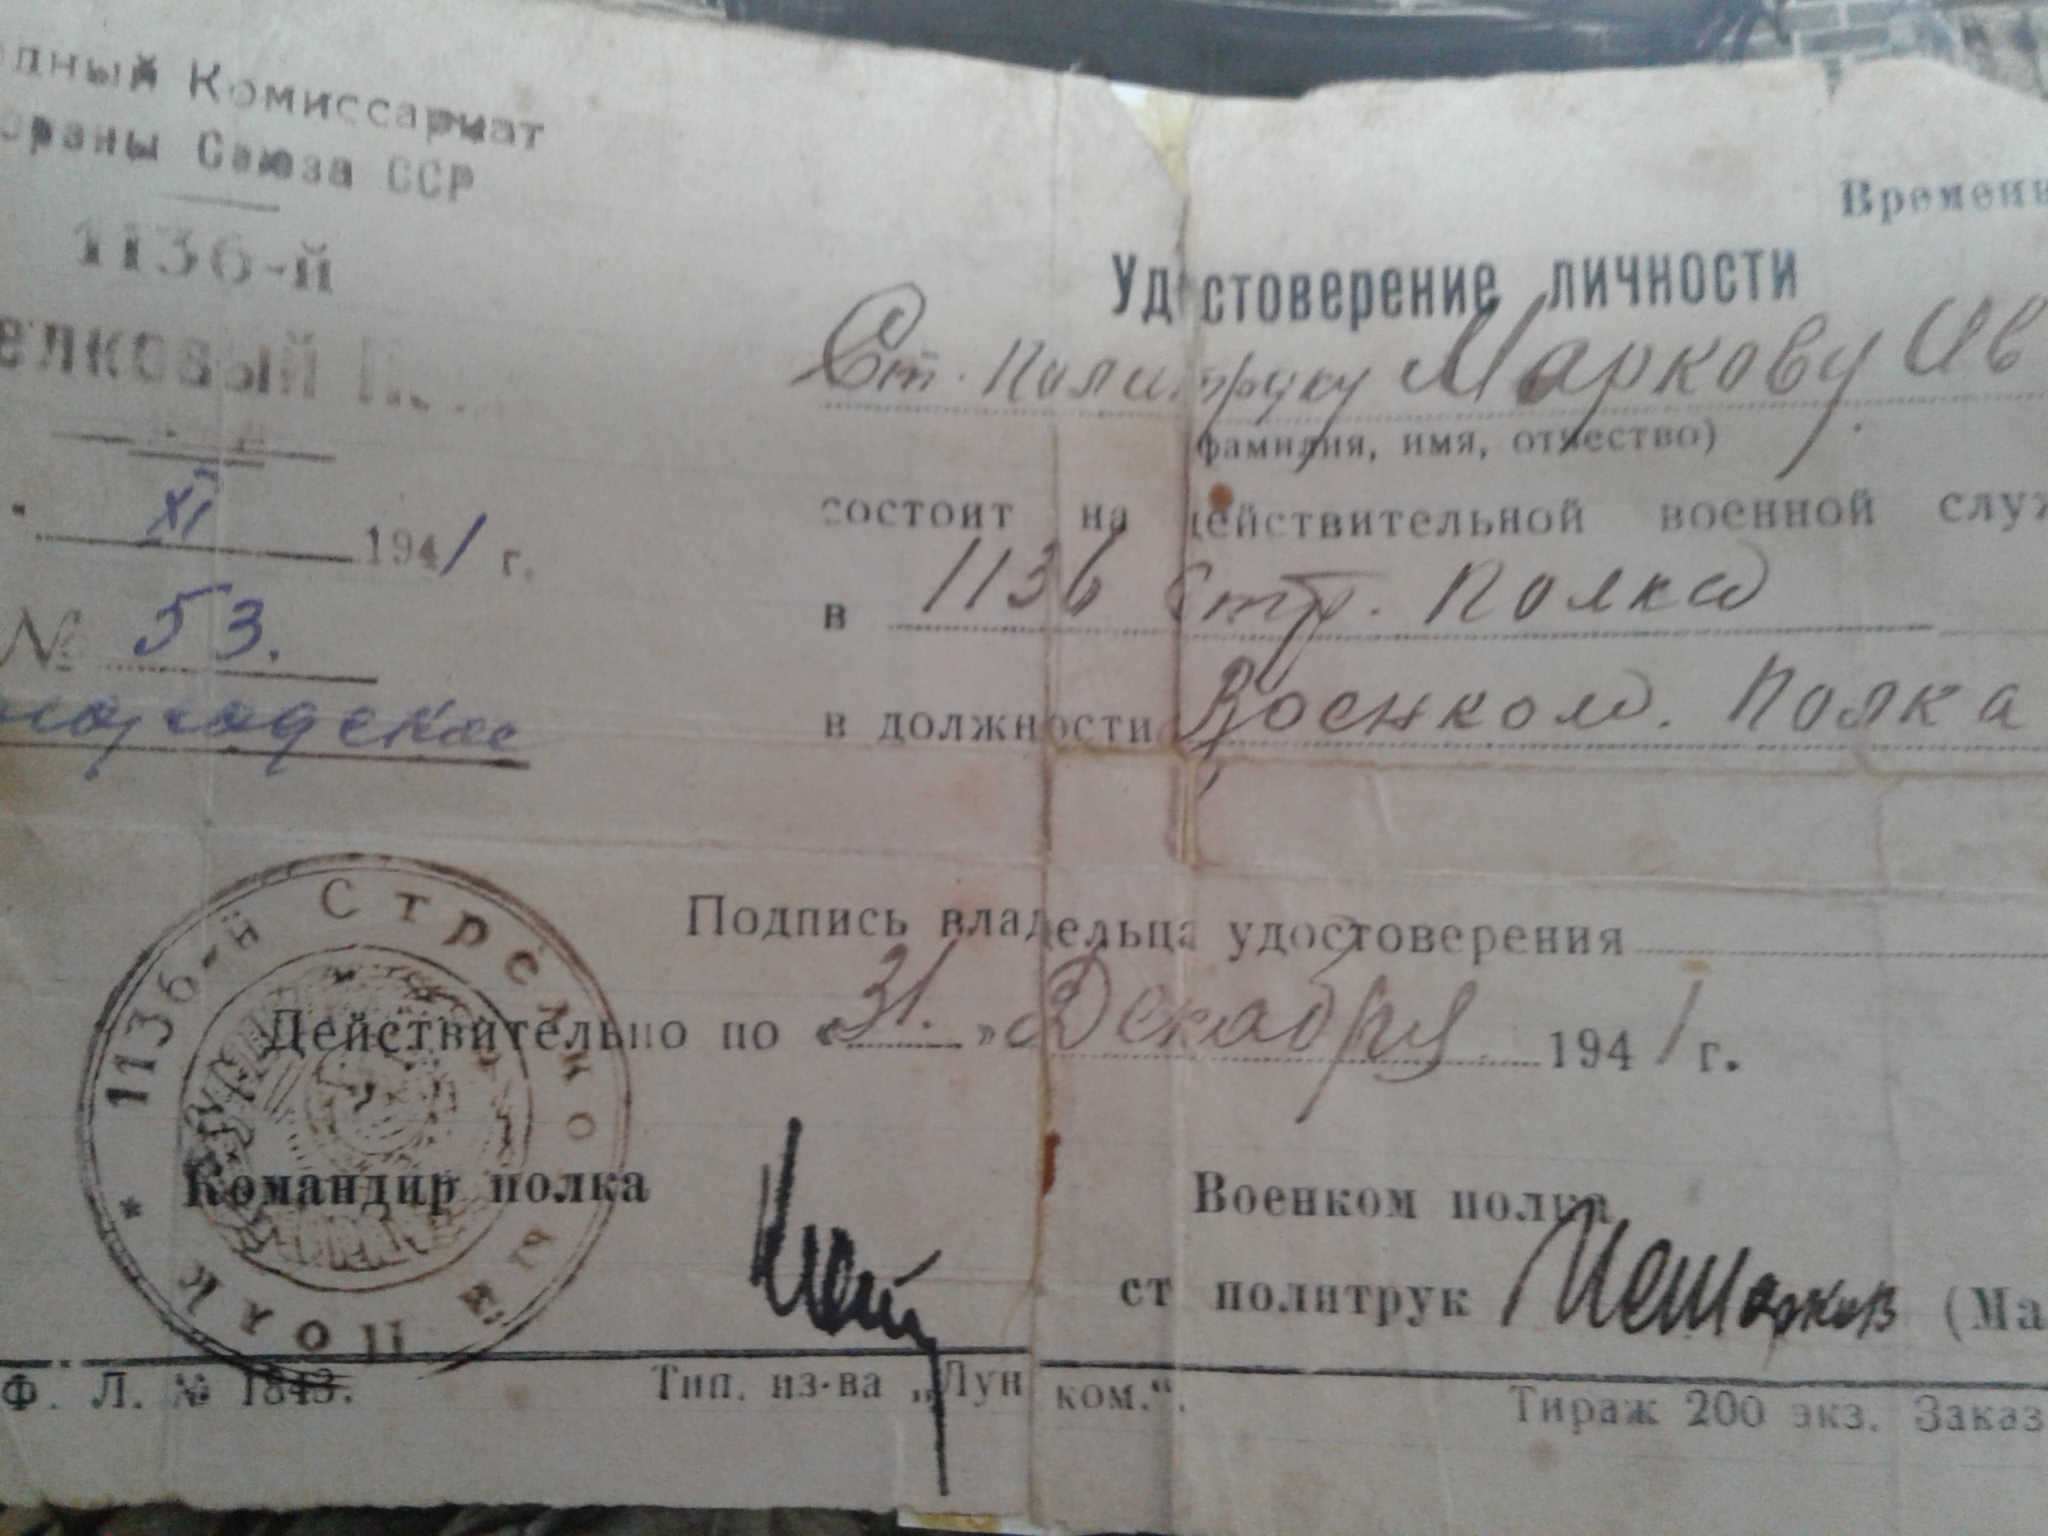 дный Комиссариат
ораны Союза ССР
1136-й
елковый П
XI 1941 г.
№ 53.
Времен
Удостоверение личности
Ст. Политруку Маркову Ив
(фамилия, имя, отчество)
состоит на действительной военной служ
в 1136 Стр. Полка
в должности Военком. Полка
Подпись владельца удостоверения
Действительно по «31.» Декабря 1941 г.
* 1136-й Стрелковый Полк
Командир полка
Военком полка
ст политрук (Ма
Ф. Л. № 1843. Тип. из-ва „Лун ком.“. Тираж 200 экз. Заказ